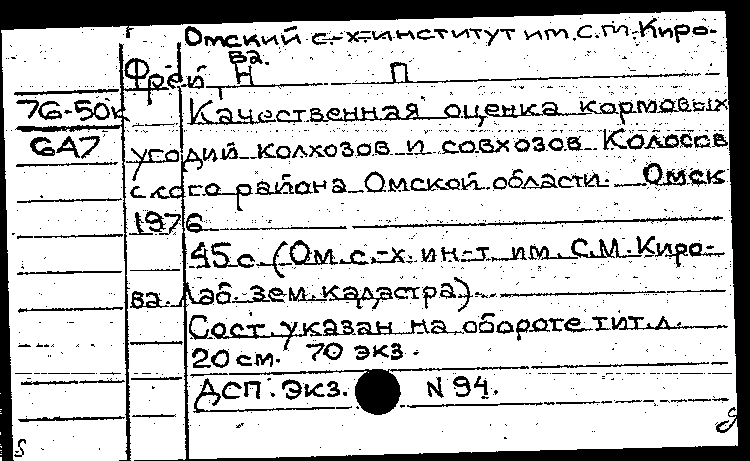 Омский с.-х-институт им.С.М.Киро-
ва.
Фрей Н П
76-50к Качественная оценка кормовых
6А7 угодий колхозов и совхозов Колосов
ского района Омской области. Омск
1976
45с. (Ом.с.-х. ин-т им. С.М.Киро-
ва. Лаб. зем. кадастра).
Сост. указан на обороте тит.л.
20 см. 70 экз.
ДСП. экз. N 94.